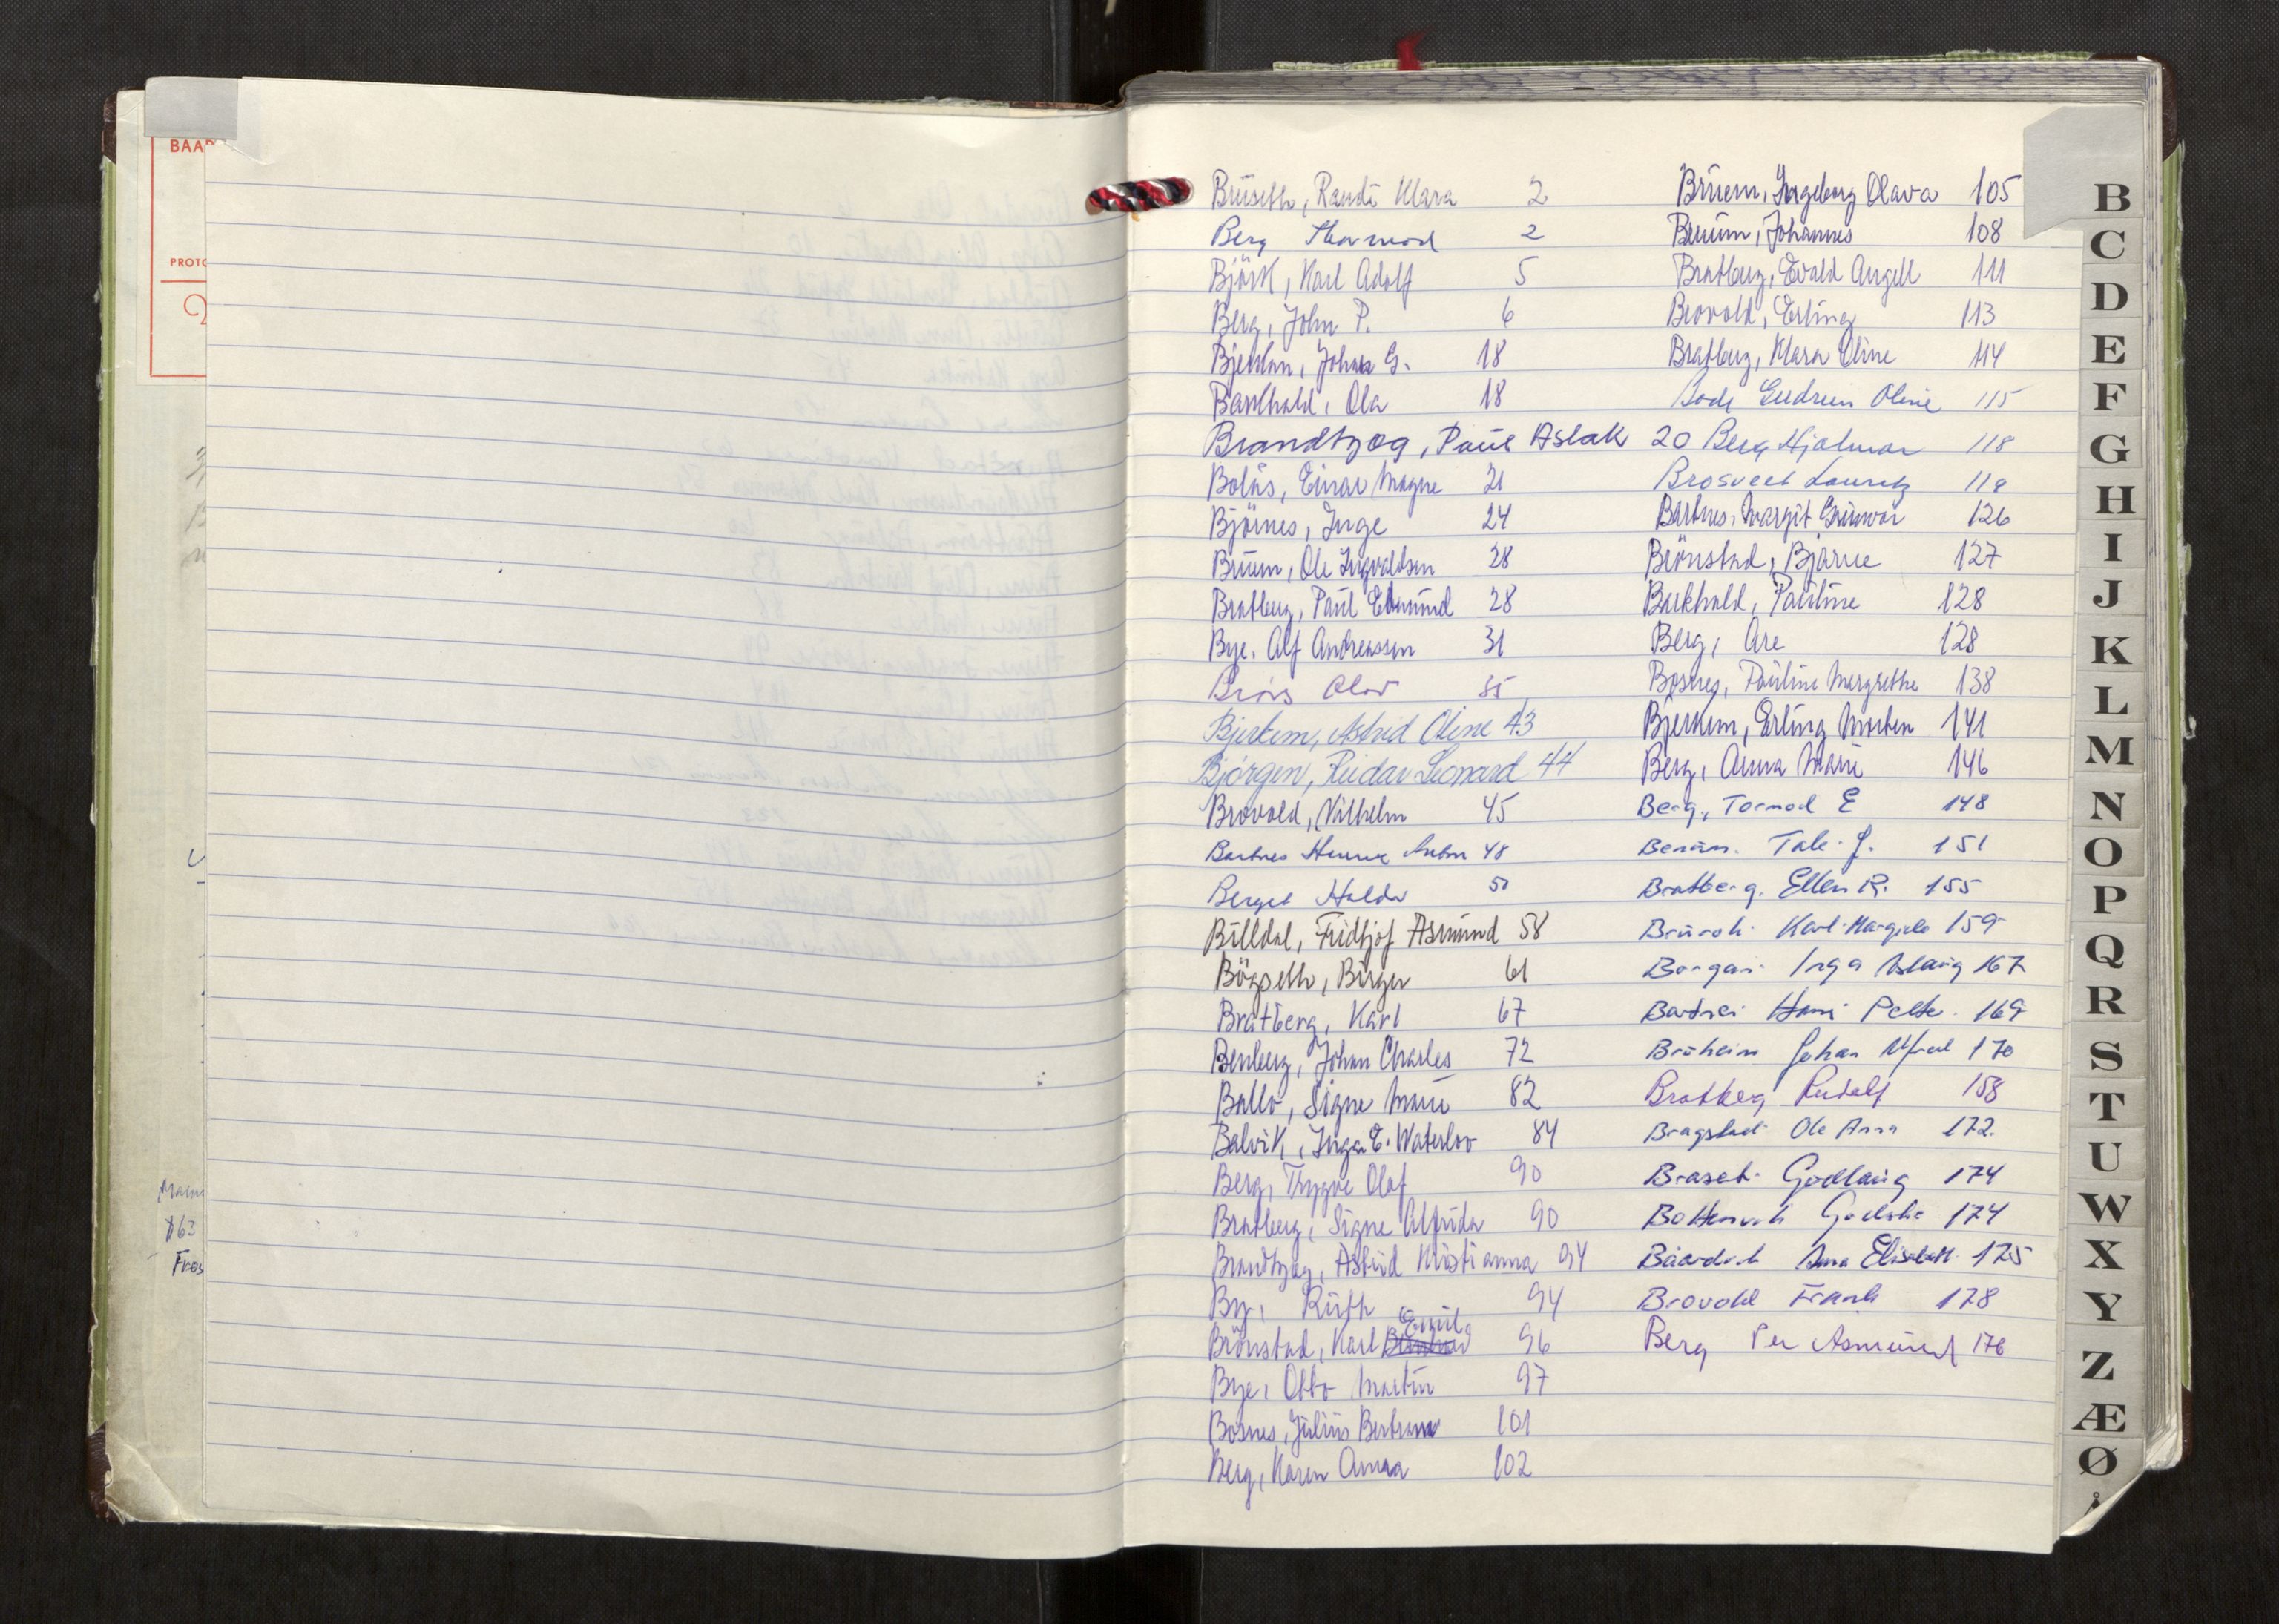 BAAR
PROTO
Brüseth, Randi Klara 2
Berg Thormod 2
Björk, Karl Adolf 5
Berg, John P. 6
Bjerkan, Johan G. 18
Barkhald, Ola 18
Brandtzog, Paul Aslak 20
Bolås, Einar Magne 21
Björnes, Inge 24
Brüem, Ole Ingvaldsen 28
Bratberg, Paul Edmund 28
Bye. Alf Andreassen 31
Olav 35
Bjerkem, Astrid Oline 43
Bjørgen, Reidar Leonard 44
Brovold, Vilhelm 45
Bartnes Henrik Anton 48
Berget Halda 50
Billdal, Fridtjof Asmund 58
Bögseth, Birger 61
Bratberg, Karl 67
Benberg, Johan Charles 72
Ballo, Signe Marie 82
Balvik, Inga E. Waterloo 84
Berg, Trygve Olaf 90
Bratberg, Signe Alfrida 90
Brandtzæg, Astrid Kristianna 94
By, Ruth 94
Emil
Brönstad, Karl 96
Bye, Otto Martin 97
Bosnes, Julius Bertram 101
Berg, Karen Anna 102
Brüem, Ingeborg Olava 105
Johannes 108
Bratberg, Evald Angell 111
Brovold, Erling 113
Bratberg, Klara Oline 114
Gudrun Oline 115
Berg Hjalmar 118
Brosveet Lauretz 119
Bartnes, Margit Gunvor 126
Brönstad, Bjarne 127
Barkhald, Pauline 128
Berg, Are 128
Bosnes, Pauline Margrethe 138
Bjerkem, Erling Morten 141
Berg, Anna Marie 146
Berg, Tormod E 148
151
Bratberg. Ellen R. 155
Karl 159
Borgan Inga Aslaug 167
Hans Petter 169
Brüheim Johan Alfred 170
Bratberg Rudolf 158
Bragstad Ole Arnt 172.
Braset Godlaug 174
174
Anna Elisabeth 175
Brovold Frank 178
Berg Per Asmund 176
B
C
D
E
F
G
H
I
J
K
L
M
N
O
P
Q
R
S
T
U
W
X
Y
Z
Æ
Ø